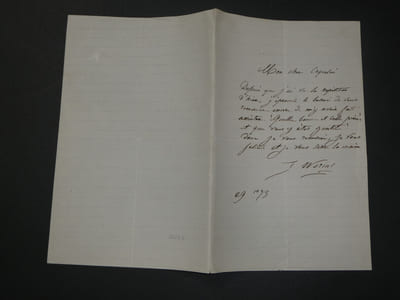 Mon cher Coquelin
Depuis que j'ai vu la répétition
d'hier, j'éprouve le besoin de vous
remercier encore de m'y avoir fait
assister. Quelle bonne et belle pièce
et que vous y êtes
Donc je vous remercie, je vous
félicite et je vous serre la main
J.
29 75